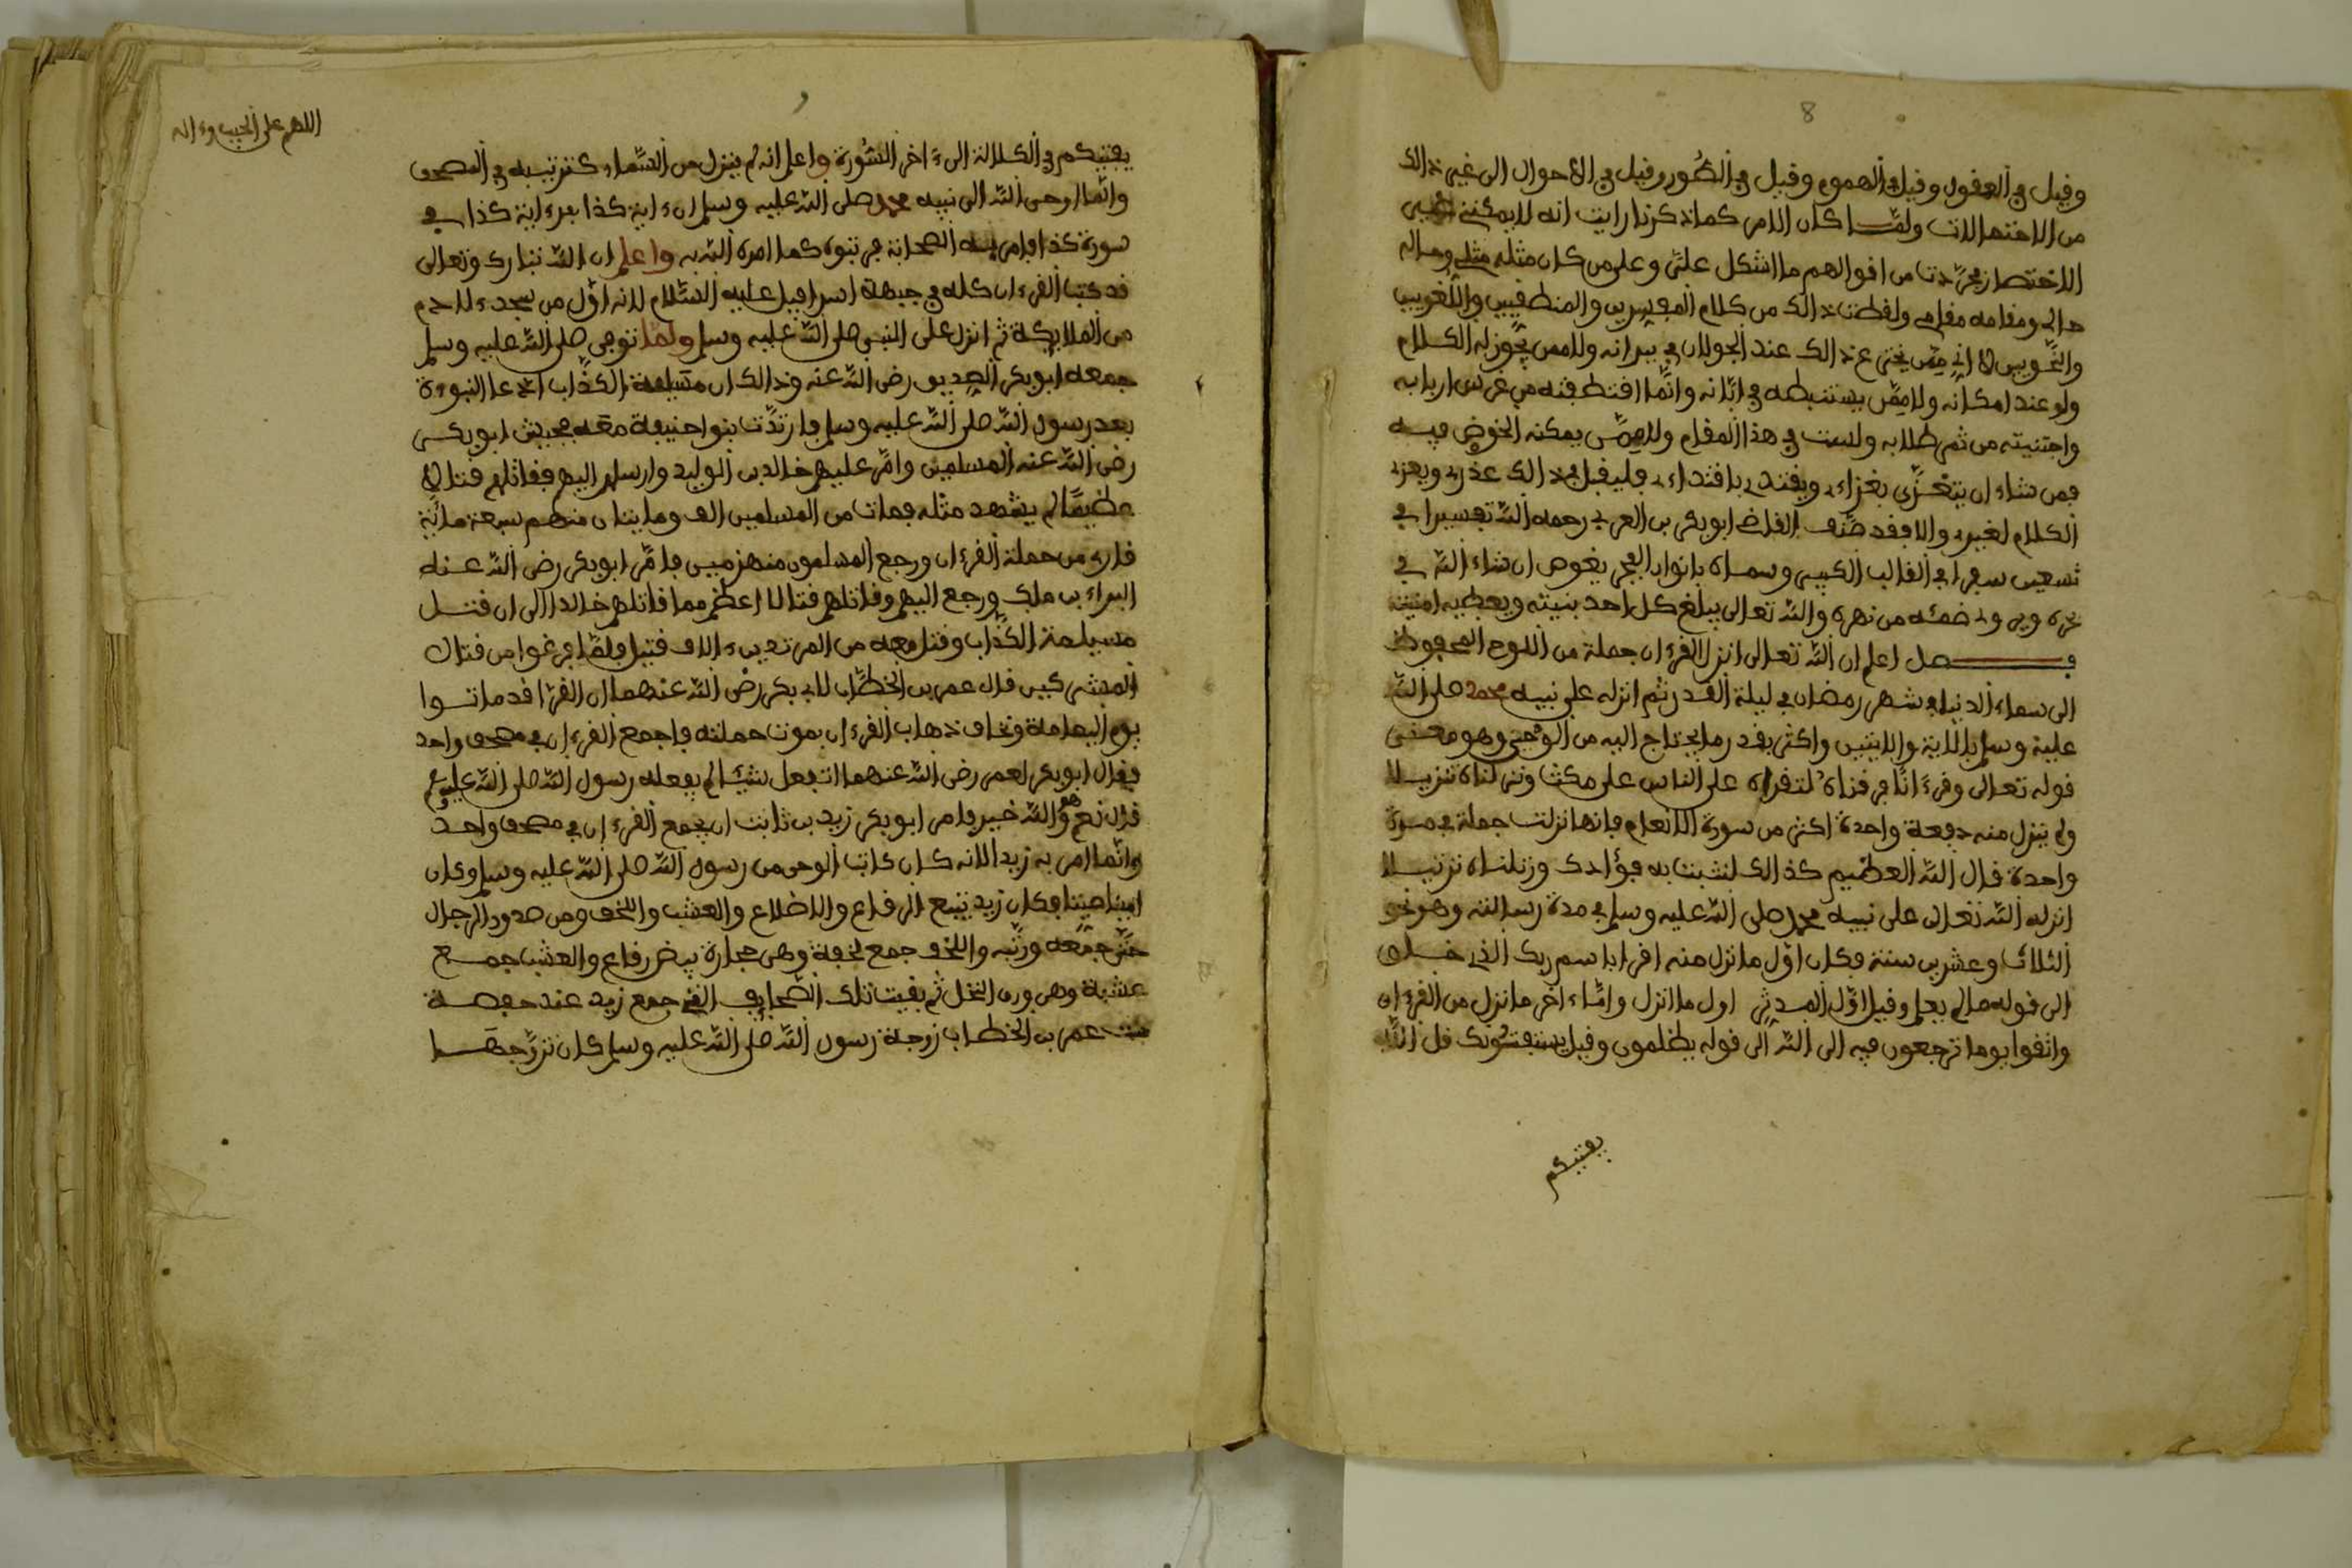 8
وقيل في العقول وقيل في الهموم وقيل في الصُّور وقيل في الأحوال الى غير ذالك
من الاحتمالات ولمّا كان الامر كما ذكرنا رايت انه لا يمكنني
الاختصار فجرّدت من اقوالهم ما اشكل علىّ وعلى من كان مثله مثلي وحاله
حالي ومقامه مقامي ولفظت ذالك من كلام المفسرين والمنطقيين واللغويين
والنحويين لا انّي ممّن يجيء عن ذالك عند الجولان في ميدانه ولا ممن يجوز له الكلام
ولو عند امكانه ولا ممّن يستنبطه في ابّانه وانّما اقتطفته من غرس اربابه
واجتنيته من ثمر طلابه ولست في هذا المقام ولا ممّن يمكنه الخوض فيه
فمن شاء ان يتعزّى بعزاءي ويقتدي باقتداءي فليقبل في ذالك عذري ويعزي
الكلام لغيري والا فقد صنّف القاضي ابو بكر بن العربي رحمه الله تفسيرا في
تسعين سفرا في القالب الكبير وسماه بانوار الفجر يغوص ان شاء الله في
بحره ويروى ضمئه من نهره والله تعالى يبلغ كل احد بنيته ويعطيه امنيته
فصل اعلم ان الله تعالى انزل القرءان جملة من اللوح المحفوظ
الى سماء الدنيا في شهر رمضان في ليلة القدر ثم انزله على نبيه محمد صلى الله
عليه وسلم بالاية والايتين واكثر بقدر ما يحتاج اليه من الوحي وهو معنى
قوله تعالى وقرءانًا فرقناه لتقراه على الناس على مكث ونزلناه تنزيلا
ولم ينزل منه دفعة واحدة اكثر من سورة الانعام فانها نزلت جملة في مرة
واحدة قال الله العظيم كذالك لنثبت به فؤادك ورتلناه ترتيلا
انزله الله تعالى على نبيه محمد صلى الله عليه وسلم في مدة رسالته وهو نحو
الثلاث وعشرين سنة فكان اوّل ما نزل منه اقرا باسم ربك الذي خلق
الى قوله ما لم يعلم وقيل اوّل المدثر اول ما انزل وامّا ءاخر ما نزل من القرءان
واتقوا يوما ترجعون فيه الى الله الى قوله يظلمون وقيل يستفتونك قل الله
يفتيكم
اللهم صل على الحبيب وءاله
يفتيكم في الكلالة الى ءاخر السُّورة واعلم انه لم ينزل من السَّماء كترتيبه في المصحف
وانّما اوحى الله الى نبيه محمد صلى الله عليه وسلم ان ءاية كذا بعد ءاية كذا في
سورة كذا فامر به الصحابة فرتبوه كما امره الله به واعلم ان الله تبارك وتعالى
قد كتب القرءان كله في جبهة اسرافيل عليه السَّلام لانه اوّل من سجد ءلادم
من الملايكة ثم انزل على النبي صلى الله عليه وسلم ولمّا توفي صلى الله عليه وسلم
جمعه ابو بكر الصديق رضي الله عنه وذالك ان مسَيلمة الكذّاب ادّعا النبوءة
بعد رسول الله صلى الله عليه وسلم فارتدّت بنوا حنيفة معَه فجيش ابو بكر
رضي الله عنه المسلمين وامّر عليهم خالد بن الوليد وارسلهم اليهم فقاتلهم قتالا
عظيمًا لم يشهد مثله فمات من المسلمين الف ومايتان منهم سبعة ماية
قارئ من حملة القرءان ورجع المسلمون منهزمين فامّر ابو بكر رضي الله عنه
البراء بن ملك ورجع اليهم وقاتلهم قتالا اعظم مما قاتلهم خالد الى ان قتل
مسيلمة الكذّاب وقتل معه من المرتدين ءالاف قتيل فلمّا فرغوا من قتال
المشركين قال عمر بن الخطّاب لابي بكر رضي الله عنهما ان القرّا قد ماتوا
يوم اليمامة ونخاف ذهاب القرءان بموت حملته فاجمع القرءان في مصحف واحد
فقال ابو بكر لعمر رضي الله عنهما اتفعل شيئا لم يفعله رسول الله صلى الله عليه وسلم
قال نعم هو والله خير فامر ابو بكر زيد بن ثابت ان يجمع القرءان في مصحف واحد
وانّما امر به زيدا لانه كان كاتب الوحي من رسول الله صلى الله عليه وسلم وكان
امينا فكان زيد يتتبع الرقاع والاضلاع والعشب واللخف ومن صدور الرجال
حتّى جمّعه ورتّبه واللخف جمع لخفة وهي حجارة بيض رقاع والعشب جمع
عشبة وهي ورق النخل ثم بقيت تلك الصّحايف التي جمع زيد عند حفصة
بنت عمر بن الخطاب زوجة رسول الله صلى الله عليه وسلم كان تزوّجهَا